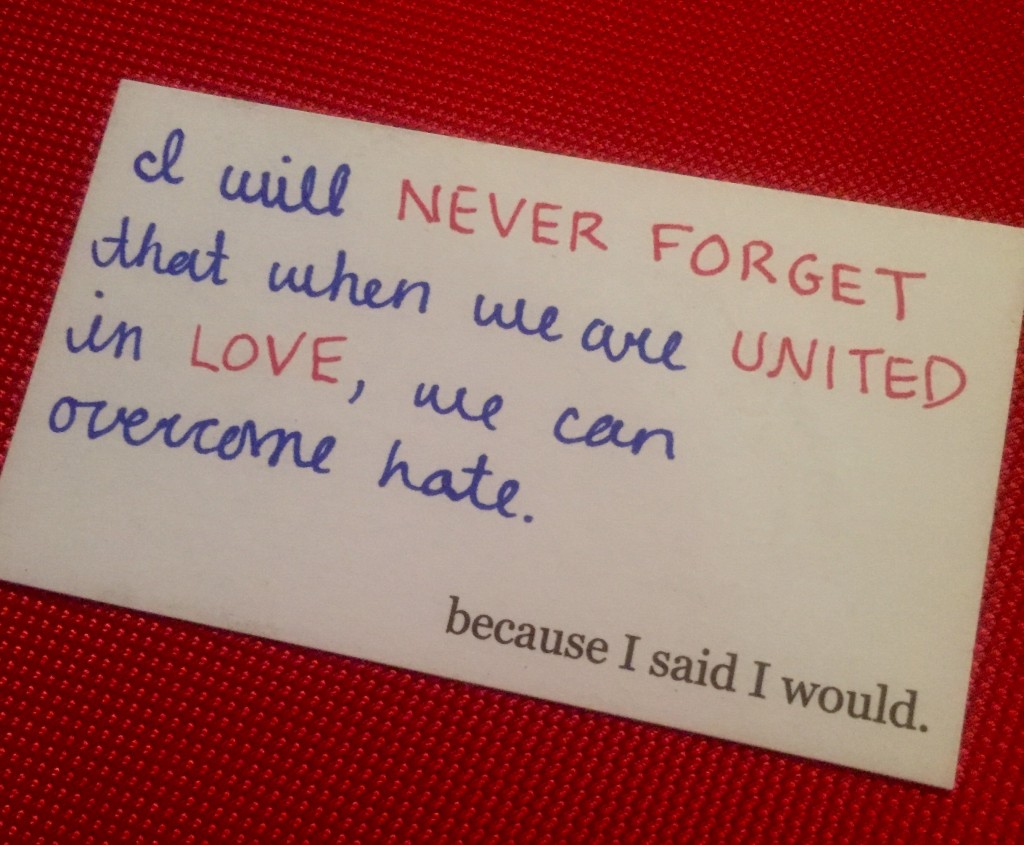 I will NEVER FORGET
that when we are UNITED
in LOVE, we can
overcome hate.
because I said I would.